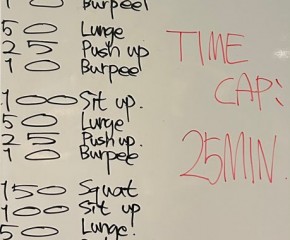 10 Burpee
50 Lunge
25 Push up
10 Burpee
100 Sit up.
50 Lunge
25 Push up.
10 Burpee
150 Squat
100 Sit up
50 Lunge
TIME
CAP:
25MIN.